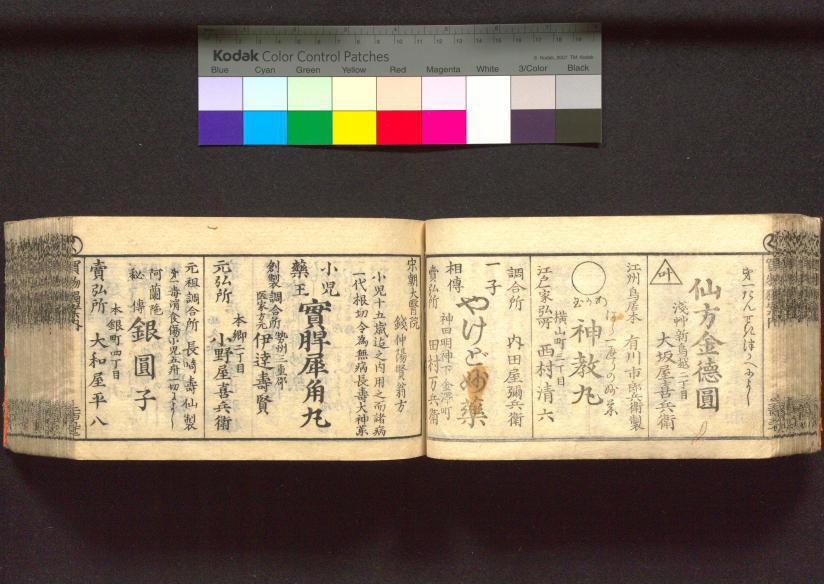 Kodak Color Control Patches
© Kodak, 2007 TM: Kodak
Blue Cyan Green Yellow Red Magenta White 3/Color Black
仙方金德圓
淺艸新鳥越二丁目
大坂屋喜兵衛
江州鳥居本 有川市郎兵衛製
神教丸
横山町二丁目
江戸家弘所 西村清六
調合所 内田屋彌兵衛
一子
相傳
やけど妙藥
神田明神下金澤町
賣弘所 田村万兵衛
宋朝大醫院
錢仲陽賢翁方
小児十五歳迄之内用之而諸病
一代根切令為無病長壽大神藥
小児
藥王
實脾犀角丸
勢州三重郡
創製調合所 伊達壽賢
本郷二丁目
元弘所 小野屋喜兵衛
元祖調合所 長崎壽仙製
阿蘭陀
秘傳
銀圓子
本銀町四丁目
賣弘所 大和屋平八